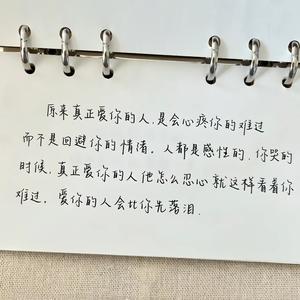 原来真正爱你的人，是会心疼你的难过
而不是回避你的情绪。人都是感性的，你哭的
时候，真正爱你的人他怎么忍心就这样看着你
难过。爱你的人会比你先落泪.